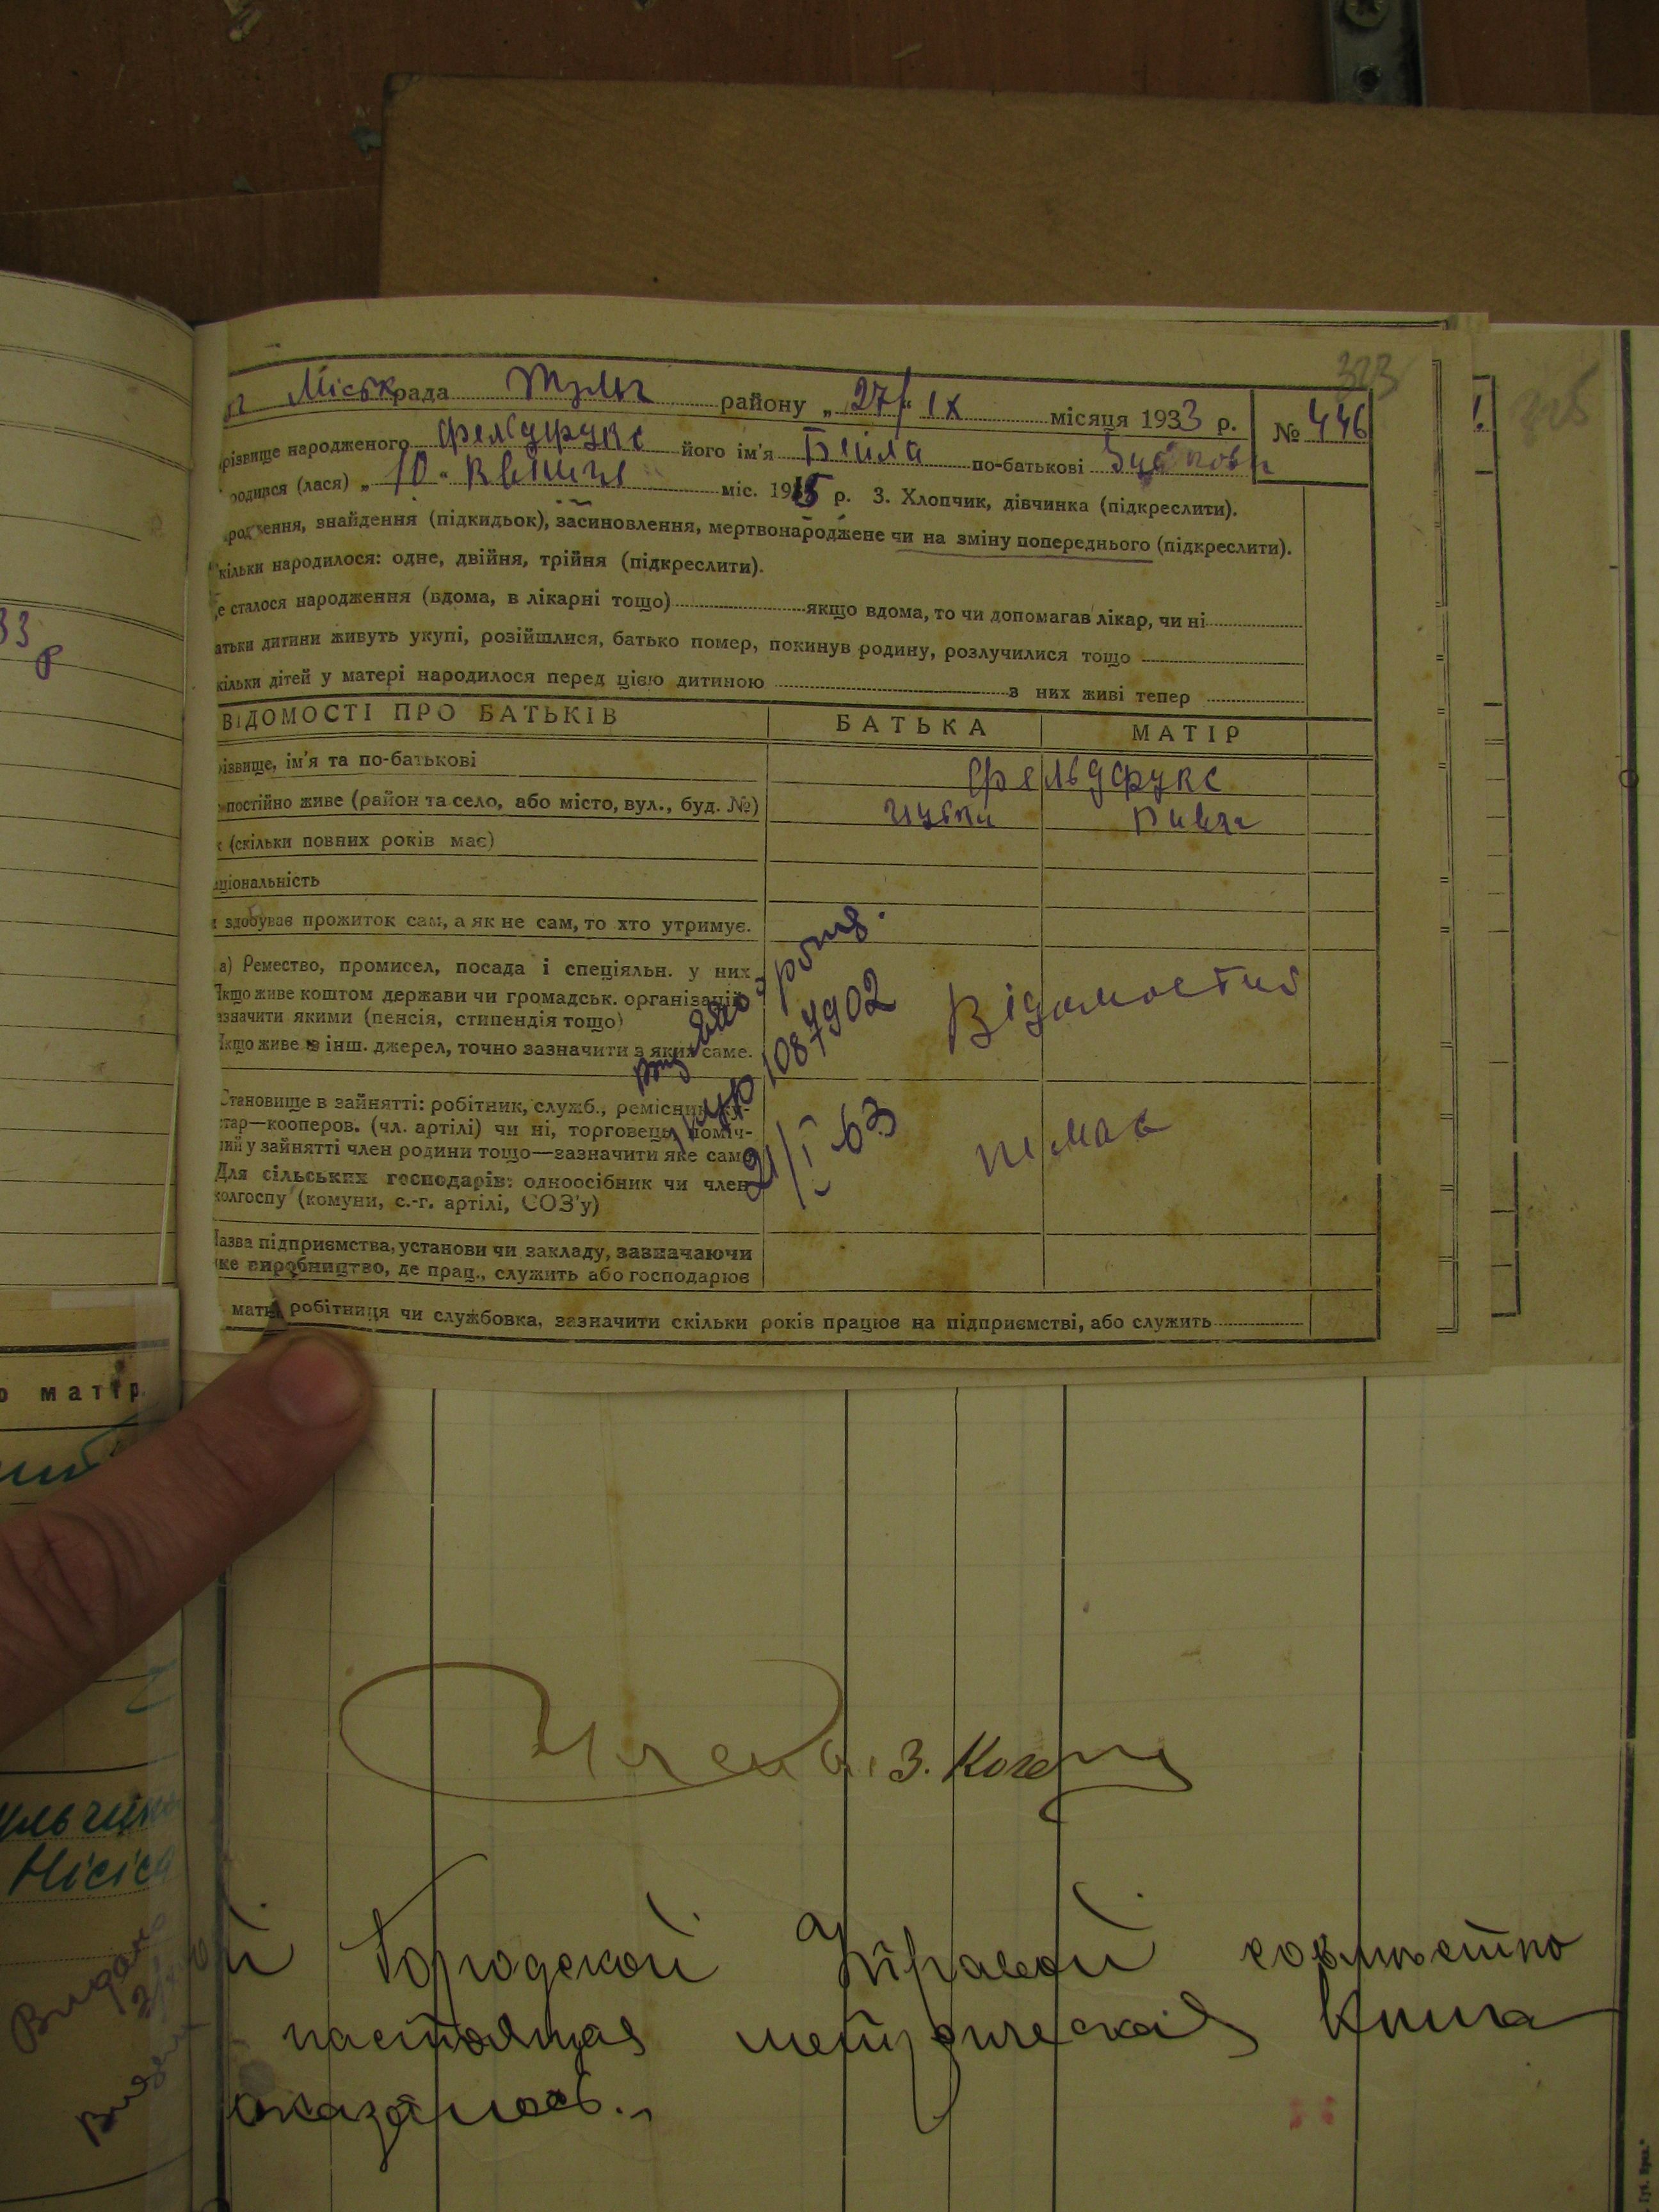 323
Міськрада Тульч району „27" IX місяця 1933 р. № 446
різвище народженого Фельдфукс його ім'я Бейла по-батькові
родився (лася) „10" квітня міс. 1915 р. 3. Хлопчик, дівчинка (підкреслити).
родження, знайдення (підкидьок), засиновлення, мертвонароджене чи на зміну попереднього (підкреслити).
кільки народилося: одне, двійня, трійня (підкреслити).
е сталося народження (вдома, в лікарні тощо) якщо вдома, то чи допомагав лікар, чи ні
атьки дитини живуть укупі, розійшлися, батько помер, покинув родину, розлучилися тощо
кільки дітей у матері народилося перед цією дитиною з них живі тепер
ВІДОМОСТІ ПРО БАТЬКІВ БАТЬКА МАТІР
різвище, ім'я та по-батькові Фельдфукс
постійно живе (район та село, або місто, вул., буд. №) Ицько
к (скільки повних років має)
аціональність
и здобуває прожиток сам, а як не сам, то хто утримує.
а) Ремество, промисел, посада і спеціяльн. у них
Якщо живе коштом держави чи громадськ. організацій
азначити якими (пенсія, стипендія тощо)
Якщо живе з інш. джерел, точно зазначити з яких саме.
Відомостей
1087902
21/I-63
Становище в зайнятті: робітник, служб., ремісник, ку-
стар—кооперов. (чл. артілі) чи ні, торговець, поміч-
ний у зайнятті член родини тощо—зазначити яке саме
Для сільських господарів: одноосібник чи член
колгоспу (комуни, с.-г. артілі, СОЗ'у)
немає
Назва підприємства, установи чи закладу, зазначаючи
яке виробництво, де прац., служить або господарює
мати робітниця чи службовка, зазначити скільки років працює на підприємстві, або служить
33
р
о матір
Член З.
й Городской Управой совместно
настоящая метрическая книга
оказалось.